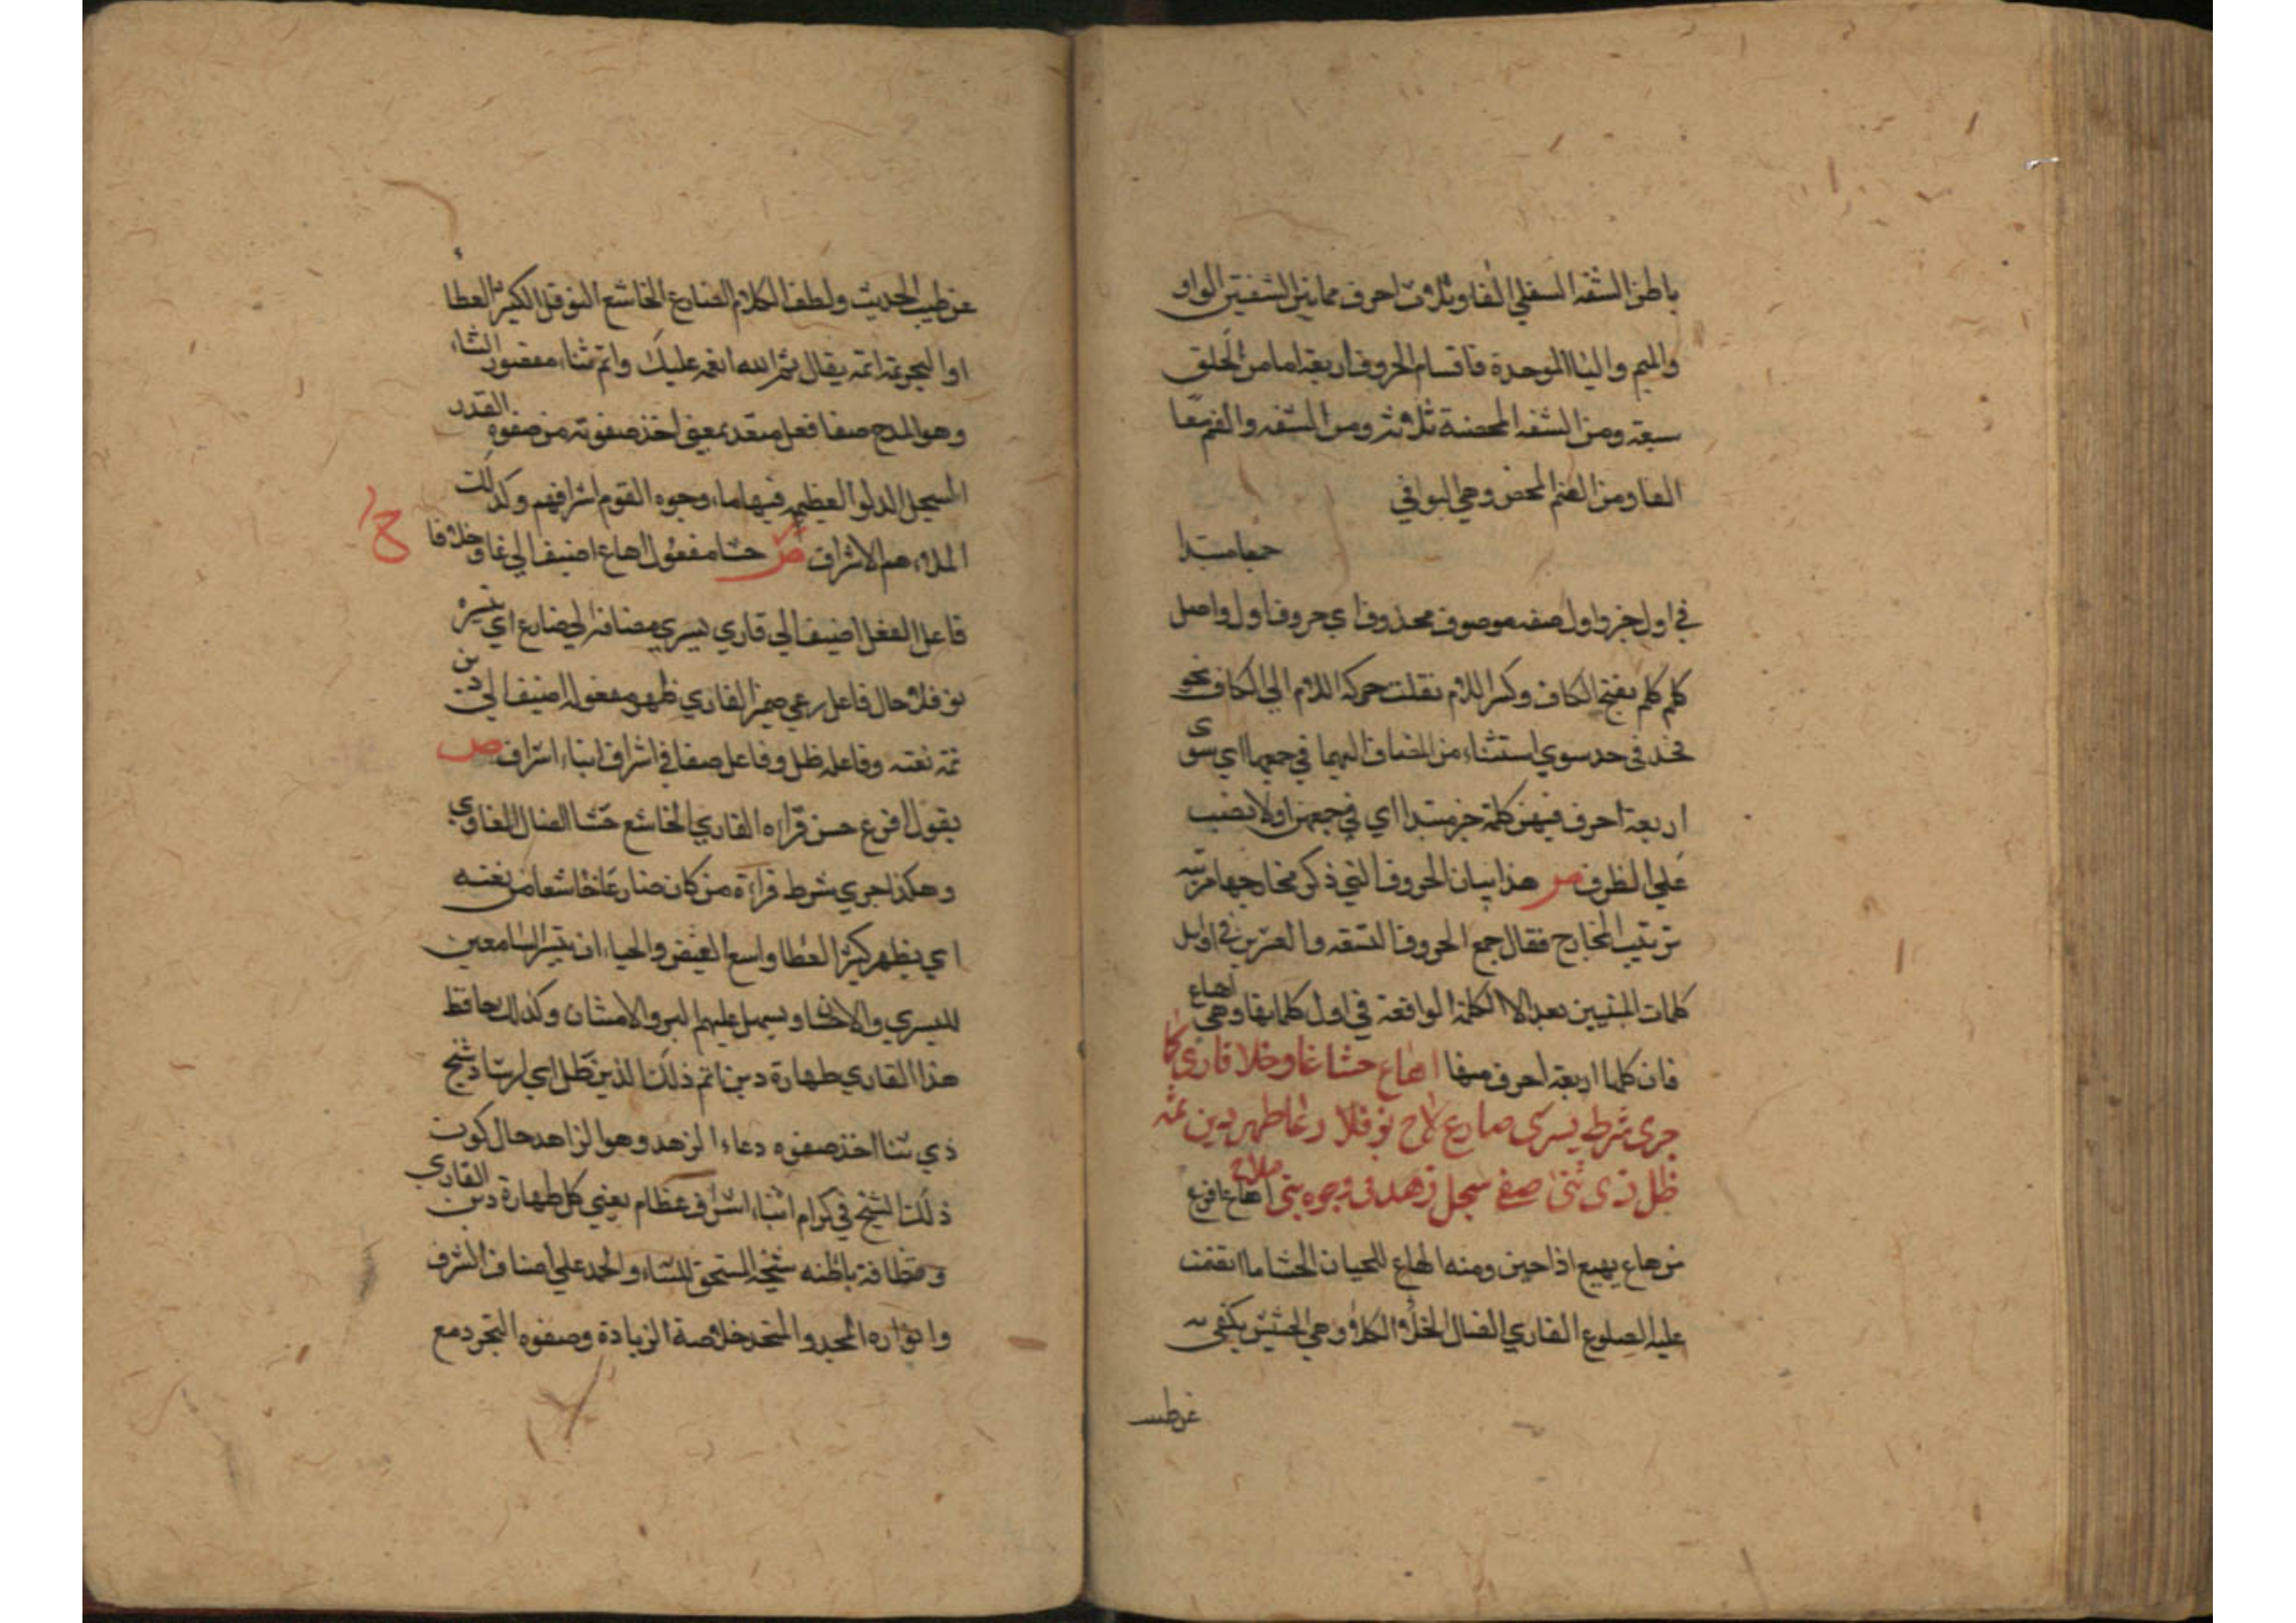 باطن الشفه السفلي الفا وثلاث احرف مما بين الشفتين الواو
والميم والباالموحدة فاقسام الحروف اربعة اما من الحلق
سبعة ومن الشفه المحضة ثلاثة ومن الشفه والفم معا
الفا ومن الفم المحض وهي البواقي
في اول خبر واول صفه موصوف محذوف اي حروف اول واصل
كلم كلم بفتح الكاف وكسر اللام نقلت حركه اللام الي الكاف نحو
فخذ في حد سوي استثناء من المضاف اليهما في جميعها اي سوى
اربعة احرف فيهن كلمة خبر مبتدا اي في جمعهن اولا نصب
علي الظرف ص هذا بيان الحروف التي ذكر مخارجها مرتبه
ترتيب المخارج فقال جمع الحروف التسعه والعشرين في اوايل
كلمات البيتين بعد الا الكلمة الواقعة في اول كلماتها وهي اهاع
فان كلها اربعة احرف منها اهاع حشا غاو خلا قاري كا
جرى شرط يسرى ضارع لاح نوفلا رعا طهر دين تمه
ظل ذي ثنا صفى سجل زهد في وجوه بني ملا ح اهاع افزع
من هاع يهيع اذا جبن ومنه الهاع للجبان الحشا ما انضمت
عليه الضلوع القاري الضال الخلا الكلاؤ وهي الحشيش يكني به
عن طيب
عن طيب الحديث ولطف الكلام الضارع الخاشع النوفل الكثير العطا
او البحر تمه اتمه يقال تم الله انعمه عليك واتم ثنا مقصور الثناء
وهو المدح صفا فعل متعد بمعنى اخذ صفوته من صفوه القدر
السجل الدلو العظيم فيها ماء وجوه القوم اشرافهم وكذلك
الملاء هم الاشراف ص حشا مفعول اهاع اضيف الي غاو وخلا قا
فاعل الفعل اضيف الي قاري يسري مضافة الي ضارع اي تيسره
نوفلا حال فاعل رعي ضمير القاري طهر مفعوله اضيف الي دين
تمه نعته وفاعله ظل وفاعل صفا في اشراف ابناء اشراف ص
يقول افزع حسن قراره القاري الخاشع حشا الضال الغاوي
وهكذا جري شرط قراءة من كان ضارعا خاشعا من نفسه
اي يظهر كثير العطا واسع الفيض والحياء ان تيسر السامعين
لليسري والاحسان ويسهل عليهم البر والامتنان وكذلك حافظ
هذا القاري طهارة دين اتم ذلك الدين ظل اي ارشاد شيخ
ذي ثنا اخذ صفوه دعاء الزهد وهو الزاهد حال كون
ذلك الشيخ في كرام ابناء اشراف عظام يعني كل طهارة دين القاري
ونظافة باطنه شيخه المستحق للثناء والحمد علي اصناف الشرف
وانواره المجد والمتخذ خلاصة الزيادة وصفوه التجرد مع